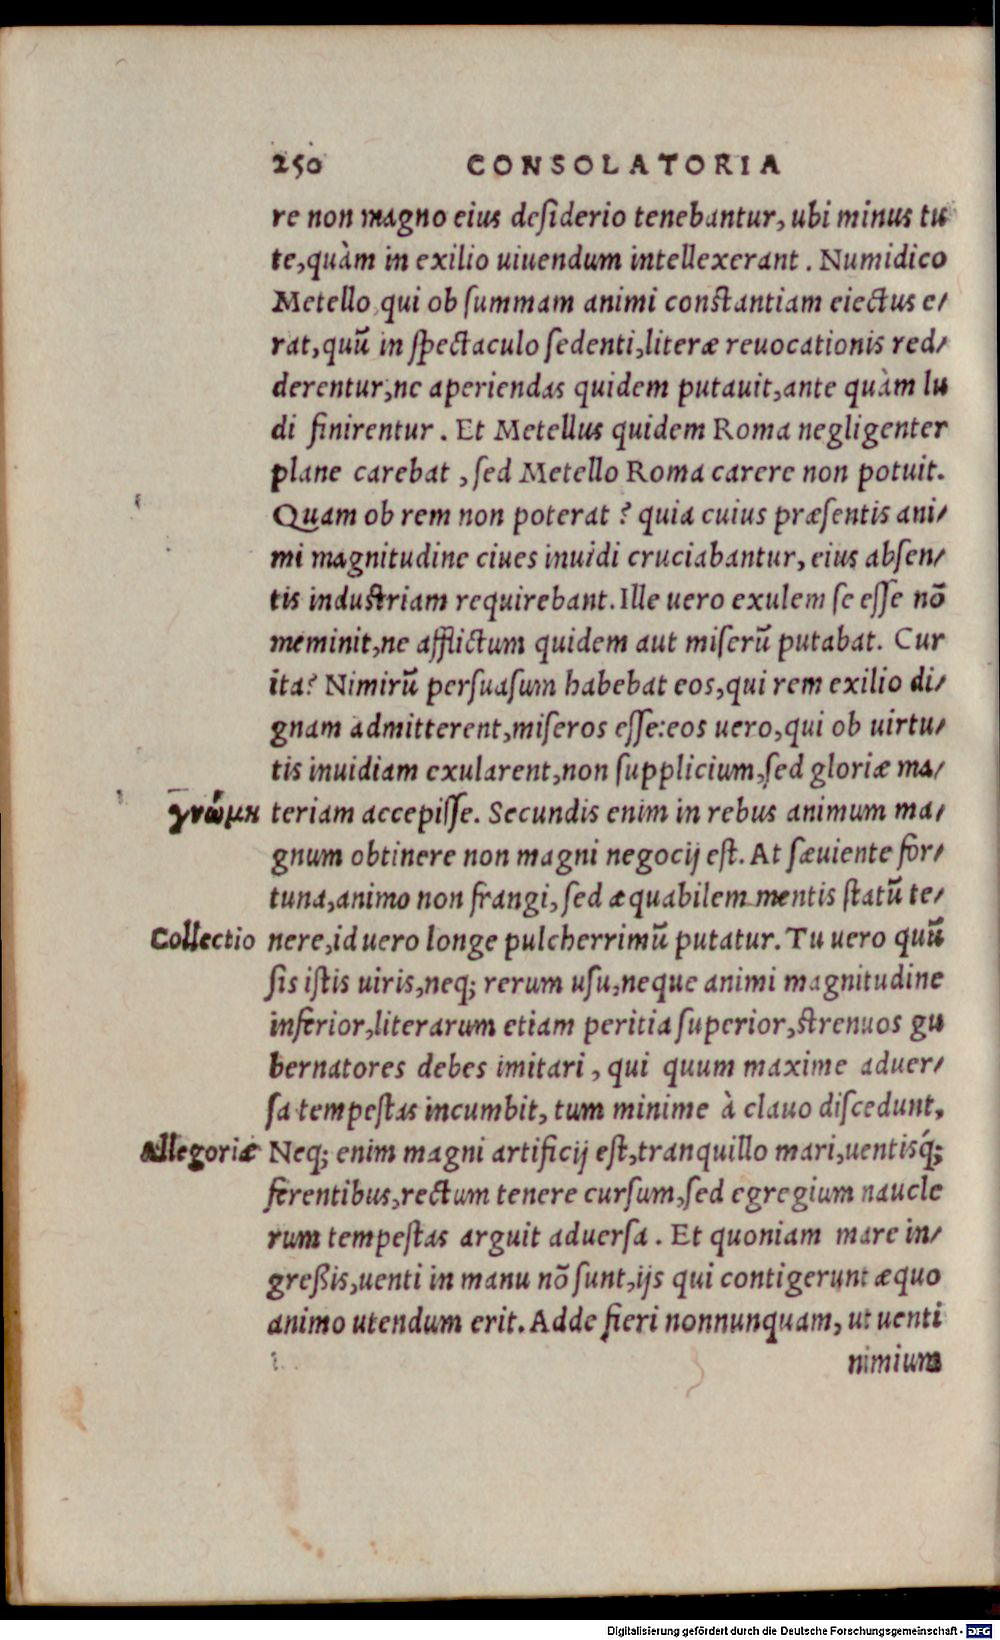 250 CONSOLATORIA
re non magno eius desiderio tenebantur, ubi minus tu
te,quàm in exilio uiuendum intellexerant. Numidico
Metello,qui ob summam animi constantiam eiectus e/
rat,quũ in spectaculo sedenti,literæ reuocationis red/
derentur,ne aperiendas quidem putauit,ante quàm lu
di finirentur. Et Metellus quidem Roma negligenter
plane carebat, sed Metello Roma carere non potuit.
Quam ob rem non poterat? quia cuius præsentis ani/
mi magnitudine ciues inuidi cruciabantur, eius absen/
tis industriam requirebant. Ille uero exulem se esse nõ
meminit,ne afflictum quidem aut miserũ putabat. Cur
ita? Nimirũ persuasum habebat eos,qui rem exilio di/
gnam admitterent,miseros esse:eos uero,qui ob uirtu/
tis inuidiam exularent,non supplicium,sed gloriæ ma/
γνώμη teriam accepisse. Secundis enim in rebus animum ma/
gnum obtinere non magni negocij est. At sæuiente for/
tuna,animo non frangi, sed æquabilem mentis statũ te/
Collectio nere,id uero longe pulcherrimũ putatur. Tu uero quũ
sis istis uiris,neq; rerum usu,neque animi magnitudine
inferior,literarum etiam peritia superior,strenuos gu
bernatores debes imitari, qui quum maxime aduer/
sa tempestas incumbit, tum minime à clauo discedunt,
Allegoriæ Neq; enim magni artificij est,tranquillo mari,uentisq́;
ferentibus,rectum tenere cursum,sed egregium naucle
rum tempestas arguit aduersa. Et quoniam mare in/
greßis,uenti in manu nõ sunt,ijs qui contigerunt æquo
animo utendum erit. Adde fieri nonnunquam, ut uenti
nimium
Digitalisierung gefördert durch die Deutsche Forschungsgemeinschaft - DFG